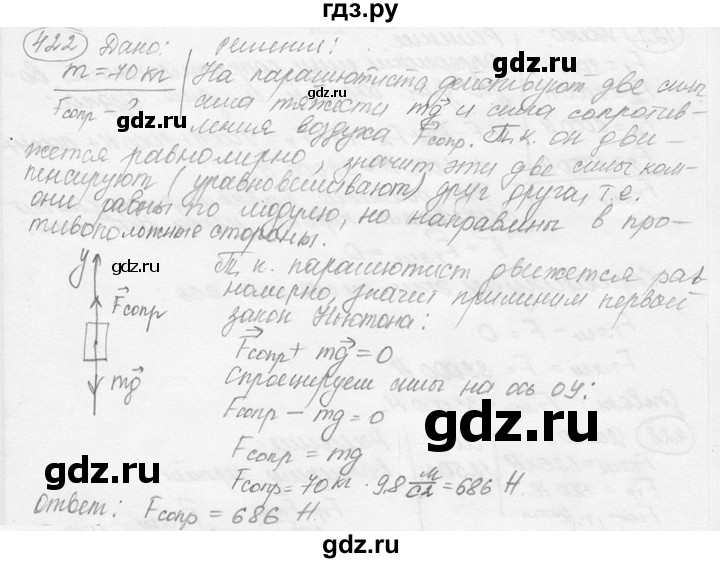 гдз.ру
422 Дано: Решение:
m = 70 кг На парашютиста действуют две силы
Fсопр - ? сила тяжести mg и сила сопротив-
ления воздуха Fсопр. Т.к. он дви-
жется равномерно, значит эти две силы ком-
пенсируют (уравновешивают) друг друга, т.е.
они равны по модулю, но направлены в про-
тивоположные стороны.
y Т.к. парашютист движется рав
номерно, значит применим первый
закон Ньютона:
Fсопр
mg
Fсопр + mg = 0
Спроецируем силы на ось oy:
Fсопр - mg = 0
Fсопр = mg
Fсопр = 70 кг · 9,8 м/с2 = 686 Н.
Ответ: Fсопр = 686 Н.
gdz.ru
gdz.ru
gdz.ru
gdz.ru
gdz.ru
gdz.ru